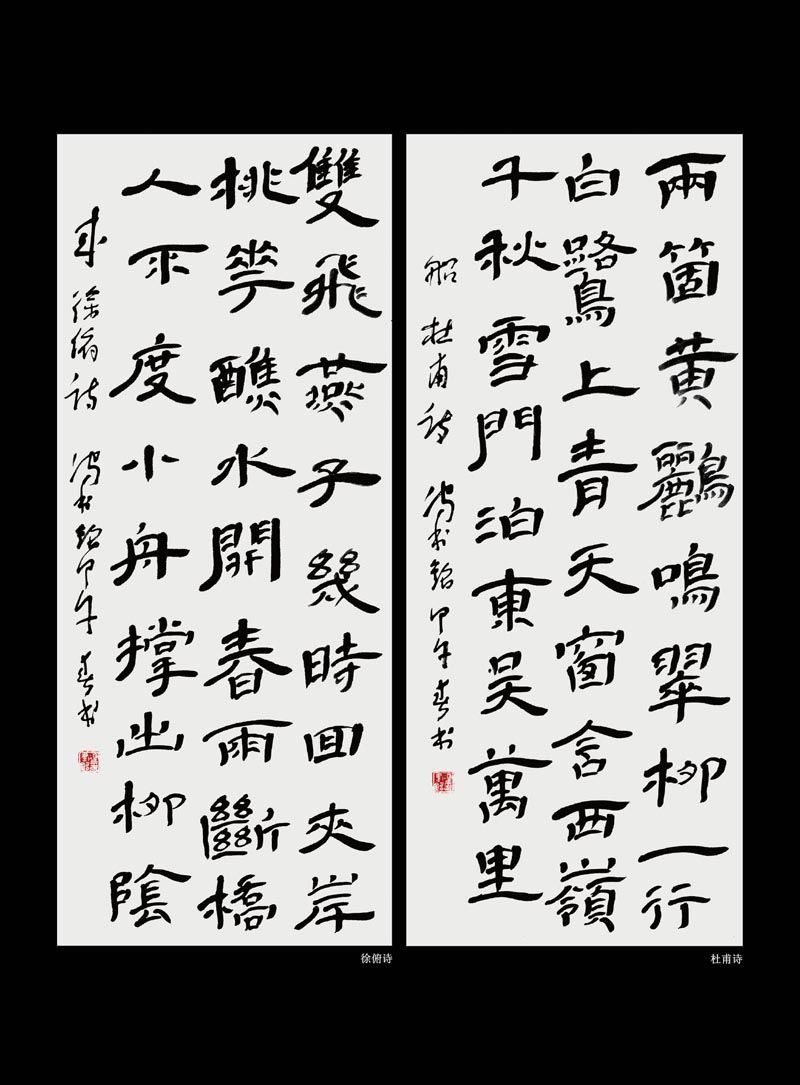 兩箇黃鸝鳴翠柳一行
白鷺上青天窗含西嶺
千秋雪門泊東吳萬里
船 杜甫诗 甲午 春书
杜甫诗
雙飛燕子幾時回夾岸
桃華醮水開春雨斷橋
人不度小舟撐出柳陰
來 徐俯诗 甲午 春书
徐俯诗